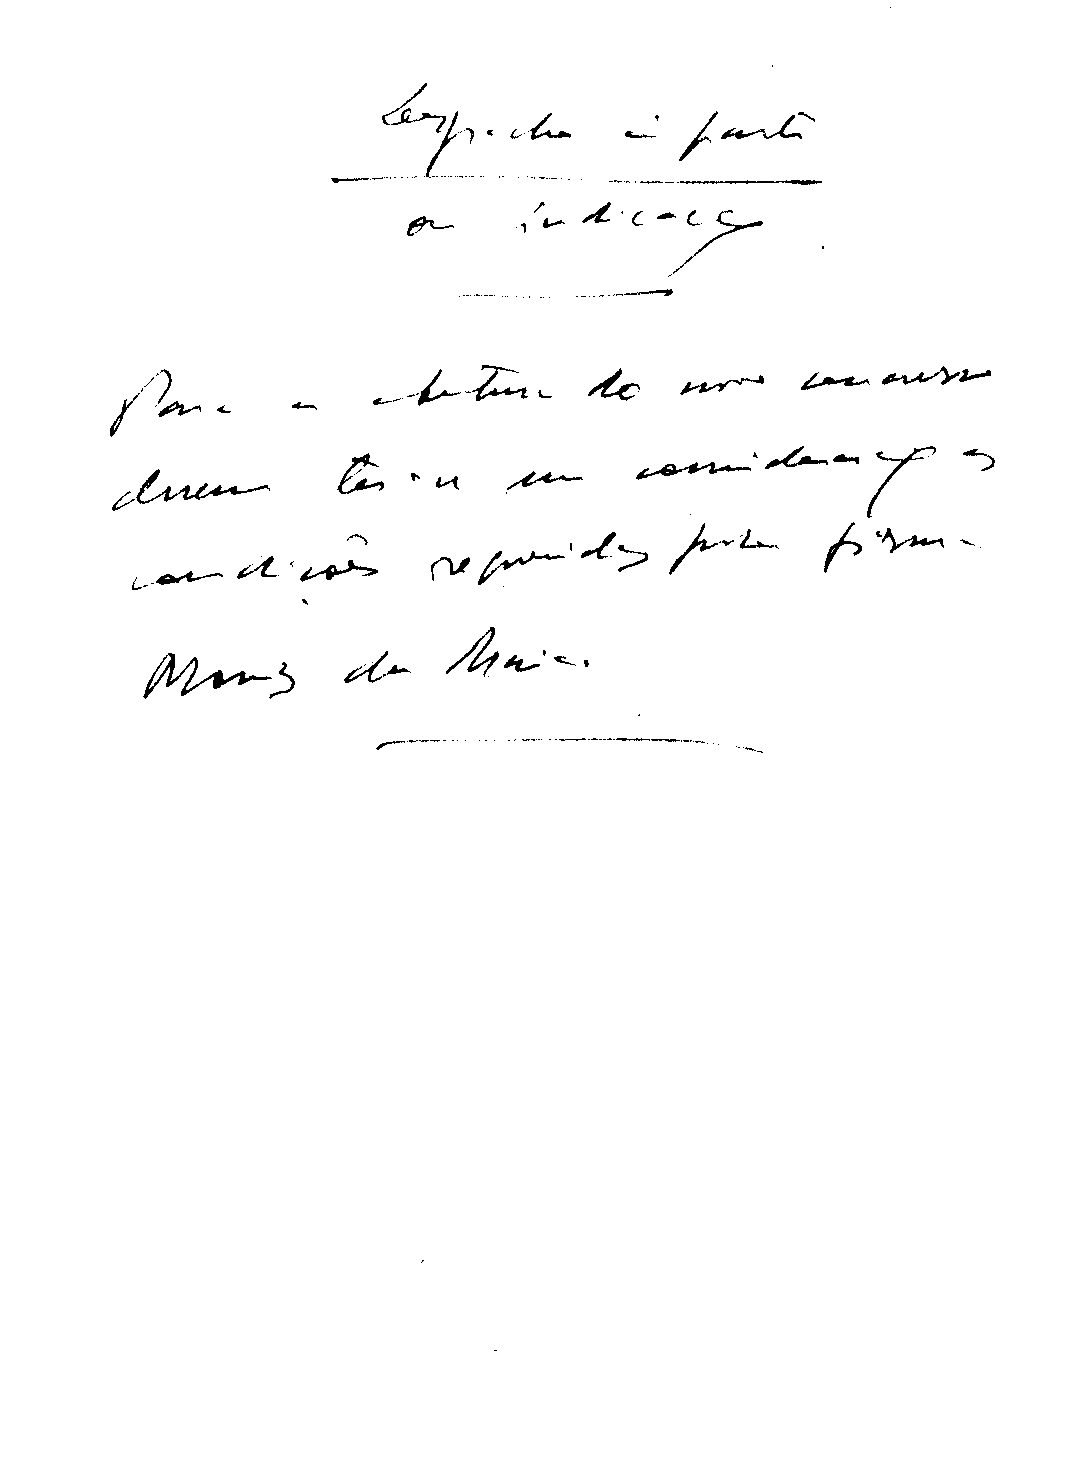 Despacho à parte
ou indicação
Para a abertura do novo concurso
devem ter-se em consideração as
condições requeridas pela firma
Moniz da Maia.